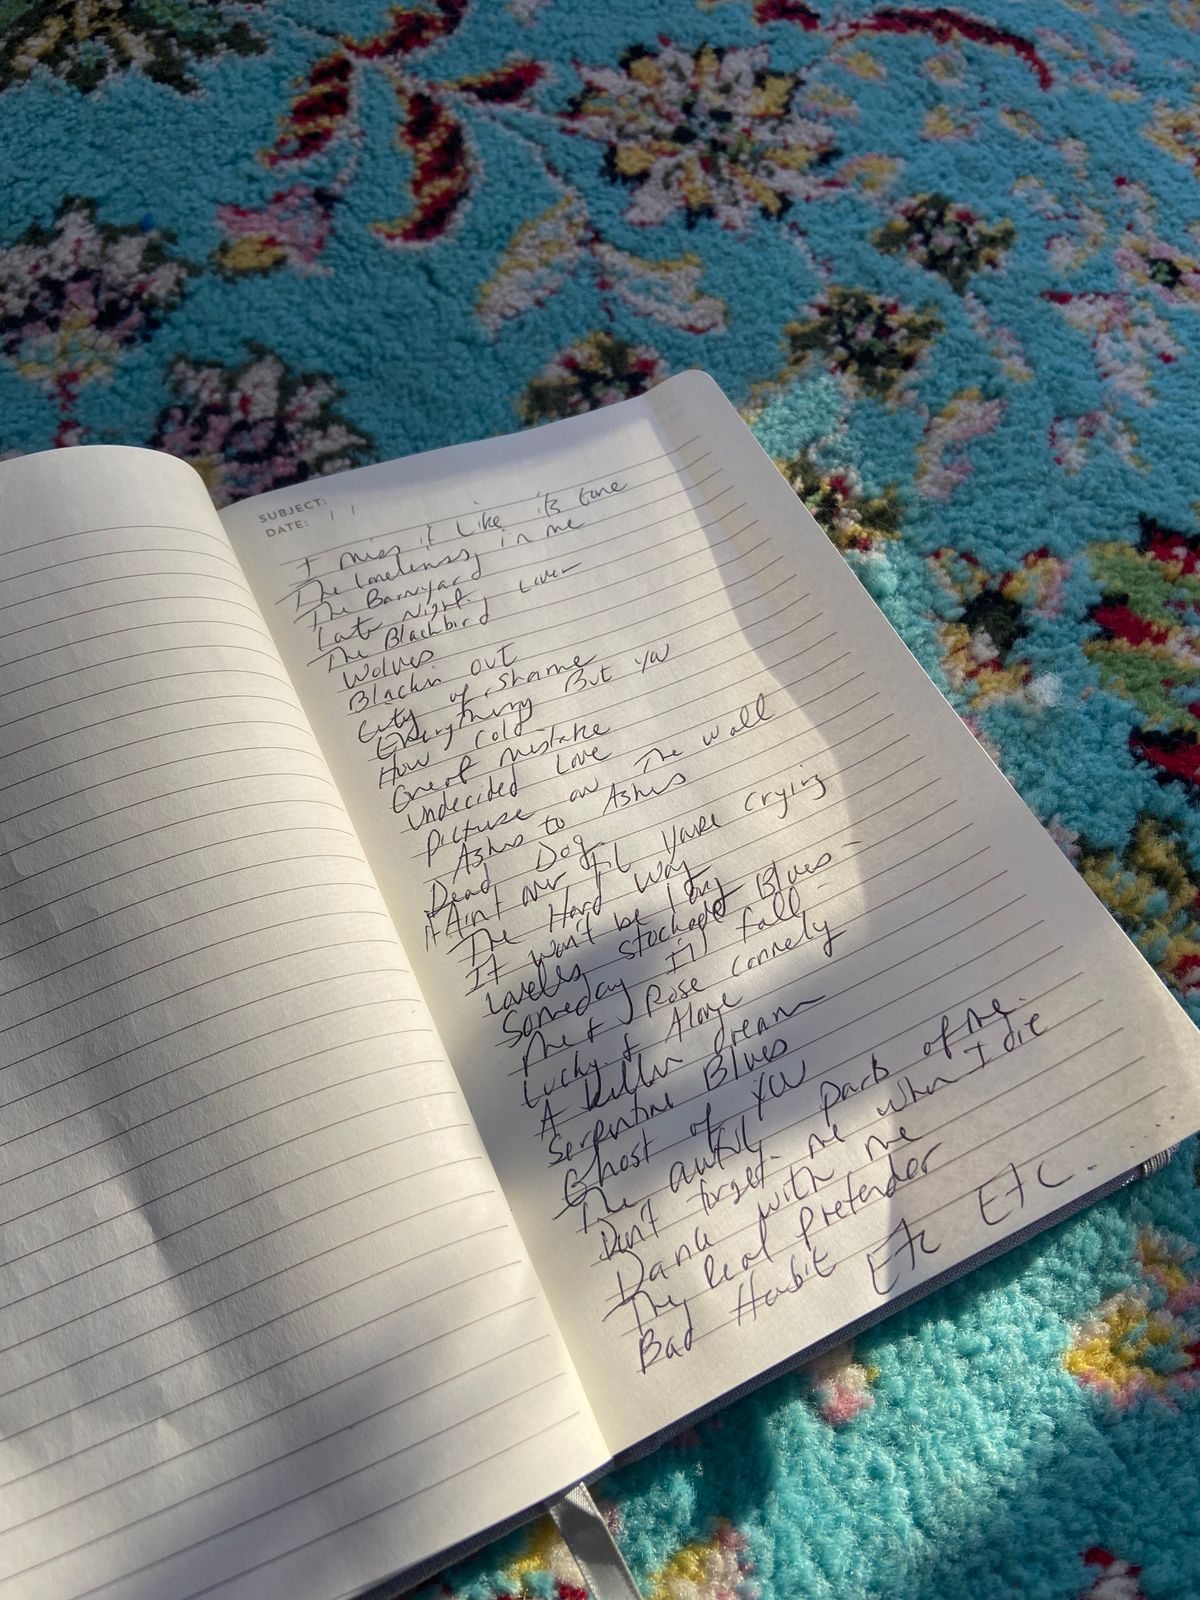 SUBJECT:
DATE: / /
I miss it Like it's gone
The Loneliness in me
The Barnyard
Late Night Lover
The Blackbird
Wolves
Blackin out
City of Shame
Everything But you
How Cold
Great Mistake
Undecided Love
Picture on The wall
Ashes to Ashes
Dead Dog
it Aint over til you're crying
The Hard Way
It won't be long
Loveless Stockade Blues
Someday I'll fall
Me & Rose Connely
Lucky & Alone
A Killin dream
Serpentine Blues
Ghost of you
The awful parts of me
Don't forget me when I die
Dance with me
The Real Pretender
Bad Habit Etc Etc.